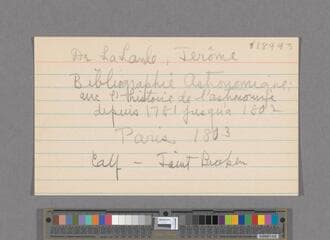 $18993
De LaLande, Jerôme
Bibliographie Astronomique:
avec l'histoire de l'astronomie
depuis 1781 jusqua 1802
Paris, 1803
Calf - Joint Broken